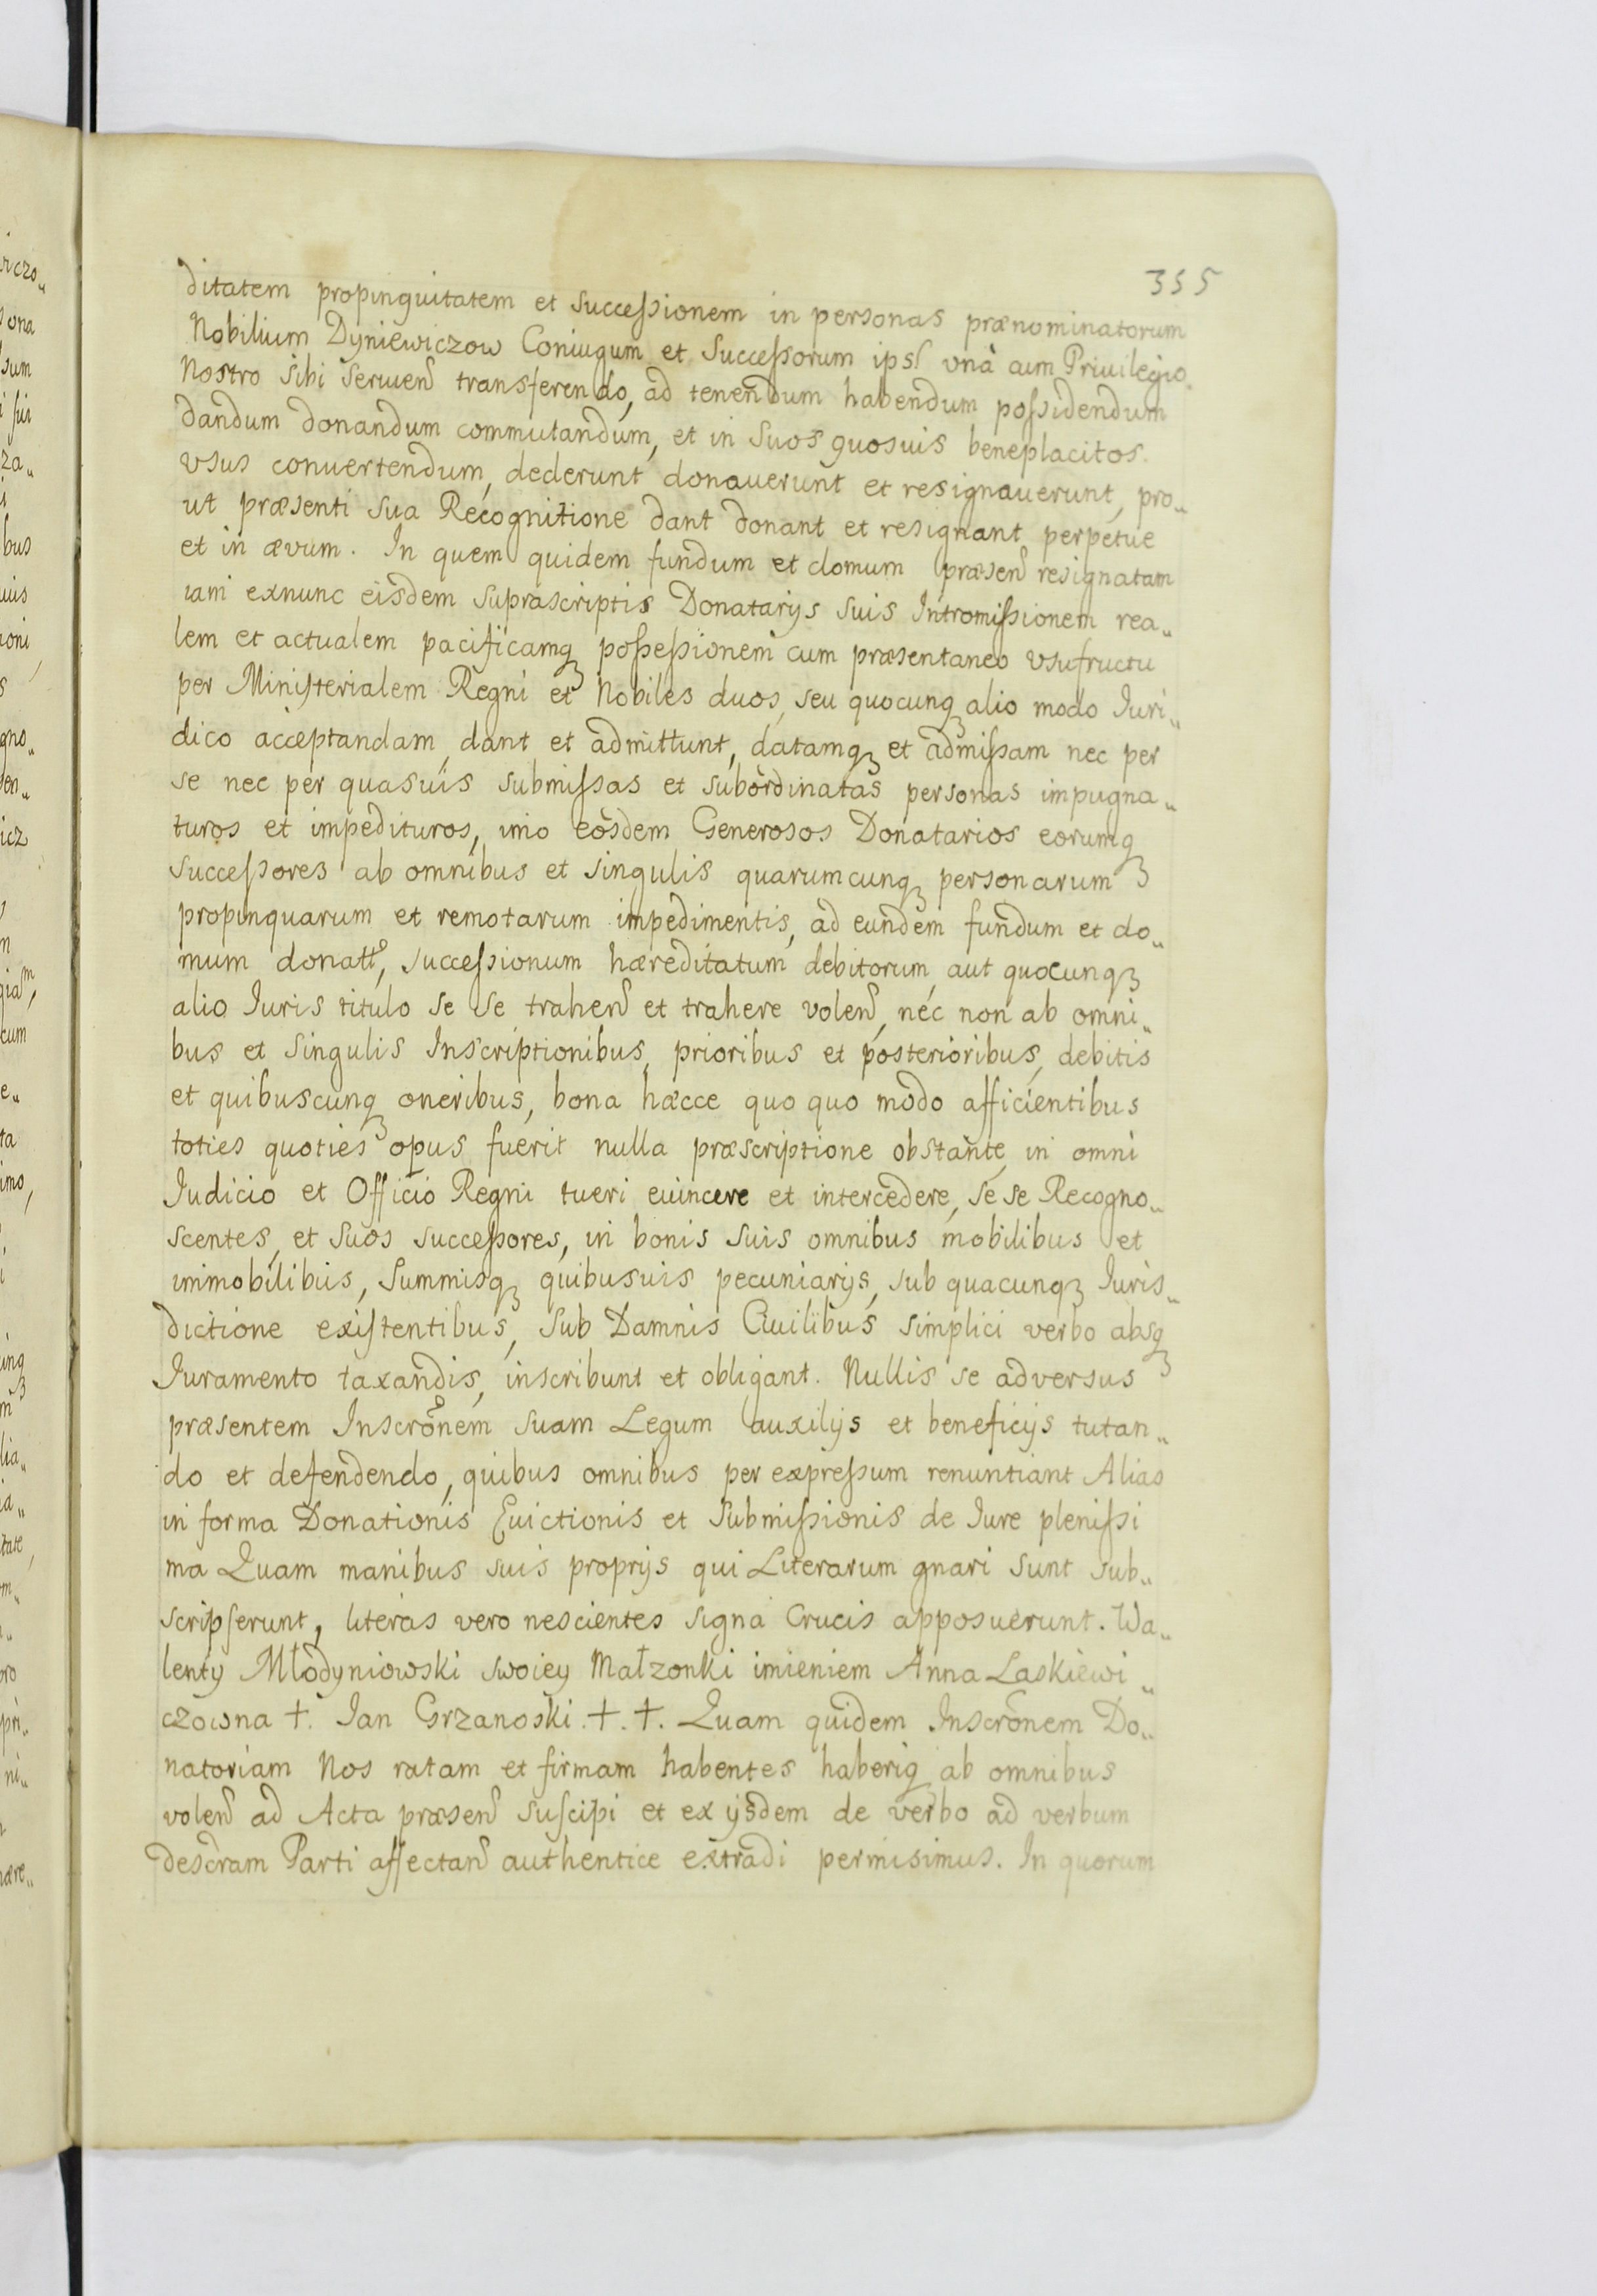 355
ditatem propinquitatem et successionem in personas prænominatorum
Nobilium Dyniewiczow Coniugum et Successorum ips' vnà cum Priuilegio
Nostro sibi seruen' transferendo, ad tenendum habendum possidendum
dandum donandum commutandum, et in suos quosuis beneplacitos
vsus conuertendum, dederunt donauerunt et resignauerunt, pro„
ut præsenti sua Recognitione dant donant et resignant perpetue
et in ævum. In quem quidem fundum et domum præsen' resignatam
iam exnunc eisdem suprascriptis Donatarijs suis Intromissionem rea„
lem et actualem pacificamq possessionem cum præsentaneo vsufructu
per Ministerialem Regni et Nobiles duos, seu quocunq alio modo Iuri„
dico acceptandam, dant et admittunt, datamq et admissam nec per
se nec per quasuis submissas et subordinatas personas impugna„
turos et impedituros, imo eosdem Generosos Donatarios eorumq
successores ab omnibus et singulis quarumcunq personarum
propinquarum et remotarum impedimentis, ad eundem fundum et do„
mum donatt', successionum hæreditatum debitorum, aut quocunq
alio Iuris titulo se se trahen' et trahere volen', nec non ab omni„
bus et singulis Inscriptionibus, prioribus et posterioribus, debitis
et quibuscunq oneribus, bona hæcce quo quo modo afficientibus
toties quoties opus fuerit nulla præscriptione obstante, in omni
Iudicio et Officio Regni tueri euincere et intercedere, se se Recogno„
scentes, et suos successores, in bonis suis omnibus mobilibus et
immobilibus, summisq quibusuis pecuniarijs, sub quacunq Iuris„
dictione existentibus, sub Damnis Ciuilibus simplici verbo absq
Iuramento taxandis, inscribunt et obligant. Nullis se adversus
præsentem Inscrõnem suam Legum auxilijs et beneficijs tutan„
do et defendendo, quibus omnibus per expressum renuntiant Alias
in forma Donationis Euictionis et Submissionis de Iure plenissi
ma Quam manibus suis proprijs qui Literarum gnari sunt sub„
scripserunt, literas vero nescientes signa Crucis apposuerunt. Wa„
lenty Młodyniowski swoiey Małzonki imieniem Anna Laskiewi„
czowna †. Ian Grzanoski. †. †. Quam quidem Inscrõnem Do„
natoriam Nos ratam et firmam habentes haberiq ab omnibus
volen' ad Acta præsen' suscipi et ex ijsdem de verbo ad verbum
descr̃am Parti affectan' authentice extradi permisimus. In quorum